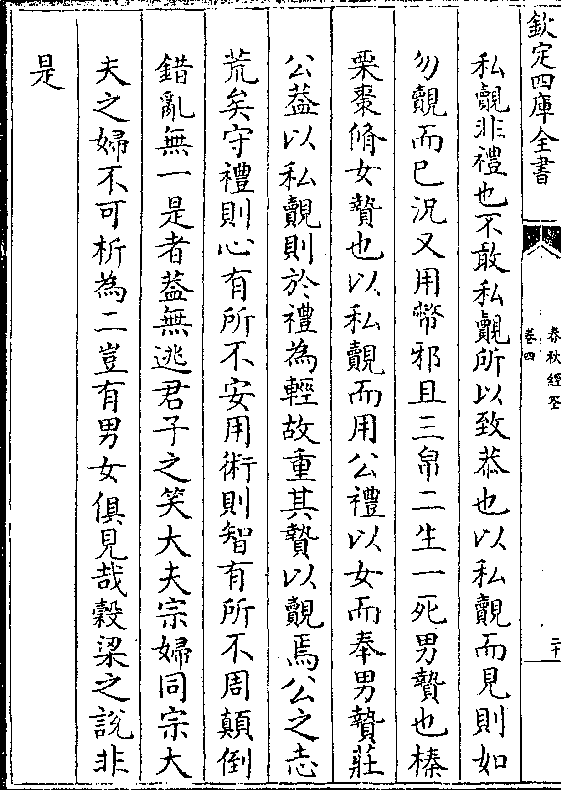 欽定四庫全書
春秋經筌
卷四
二十
私覿非禮也不敢私覿所以致恭也以私覿而見則如
勿覿而已況又用幣邪且三帛二生一死男贄也榛
栗棗脩女贄也以私覿而用公禮以女而奉男贄莊
公葢以私覿則於禮為輕故重其贄以覿焉公之志
荒矣守禮則心有所不安用術則智有所不周顛倒
錯亂無一是者葢無逃君子之笑大夫宗婦同宗大
夫之婦不可析為二豈有男女俱見哉穀梁之說非
是